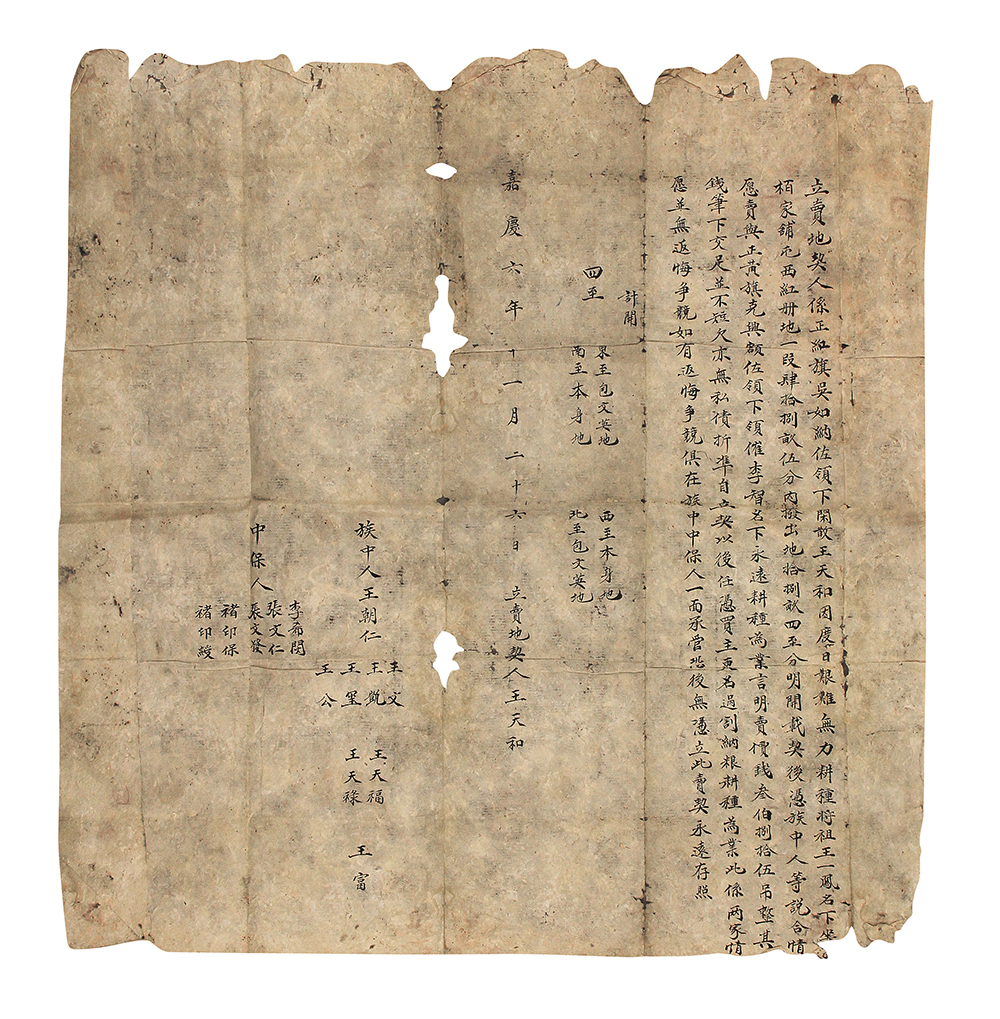 立賣地契人係正紅旗吳如納佐領下閑散王天和因度日艱難無力耕種將祖王一鳳名下坐
栢家鋪屯西紅册地一段肆拾捌畝伍分內撥出地拾捌畝四至分明開載契後憑族中人等說合情
愿賣與正黃旗克興額佐領下領催李智名下永遠耕種為業言明賣價錢叁伯捌拾伍吊整其
錢筆下交足並不短欠亦無私債折準自立契以後任憑買主更名過割納粮耕種為業此係兩家情
愿並無返悔爭競如有返悔爭競俱在族中中保人一面承當恐後無憑立此賣契永遠存照
計開
四至
東至包文英地 西至本身地
南至本身地 北至包文英地
嘉慶六年十一月二十六日 立賣地契人王天和
族中人王朝仁
王文
王 王天福
王墨 王天祿 王富
王公
中保人
李希閔
張文仁
張文發
褚印保
褚印綬